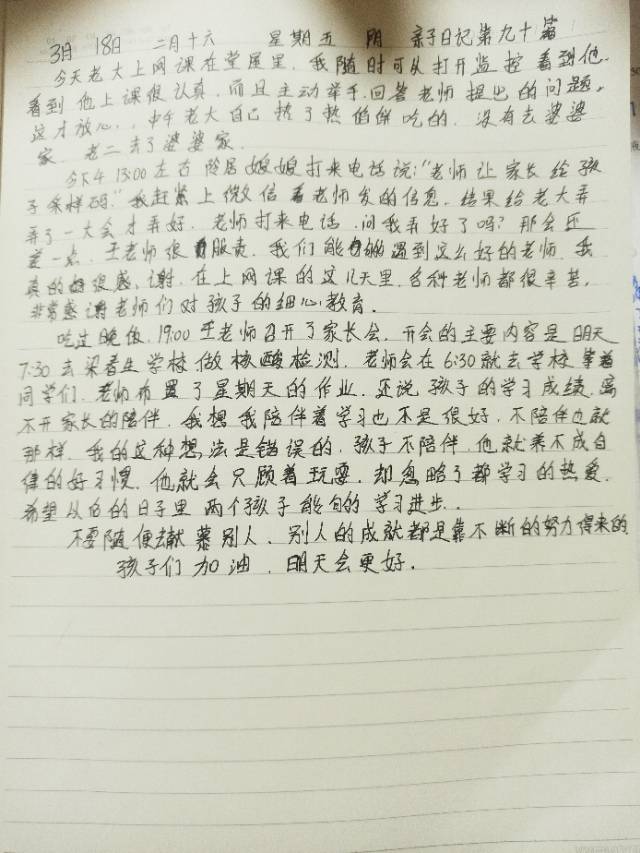 3月 18日 二月十六 星期五 阴 亲子日记第九十篇
今天老大上网课在堂屋里，我随时可从打开监控看到他.
看到他上课很认真，而且主动举手.回答老师提出的问题。
这才放心，，中午老大自己 热了 吃的，没有去婆婆
家. 老二去了婆婆家.
今下午 13:00左右 隔居娘娘打来电话说:"老师让家长给孩
子采样码." 我赶紧上微信看老师发的信息. 结果给老大弄
弄了一大会才弄好. 老师打来电话.问我弄好了吗? 那会还
差一点. 王老师很 负责. 我们能 遇到这么好的老师. 我
真的 很感.谢. 在上网课的这几天里. 各科老师都很辛苦.
非常感谢老师们对孩子的细心教育.
吃过晚饭. 19:00 王老师召开了家长会. 开会的主要内容是明天
7:30去梁 学校做核酸检测. 老师会在6:30就去学校 着
同学们. 老师布置了星期天的作业. 还说孩子的学习成绩.离
不开家长的陪伴. 我想我陪伴着学习也不是很好. 不陪伴也就
那样. 我的这种想法是错误的. 孩子不陪伴.他就养不成自
律的好习惯. 他就会只顾着玩耍. 却忽略了都学习的热爱.
希望从 的日子里 两个孩子能 的学习进步..
不要随便去 慕别人. 别人的成就都是靠不断的努力得来的
孩子们加油. 明天会更好.